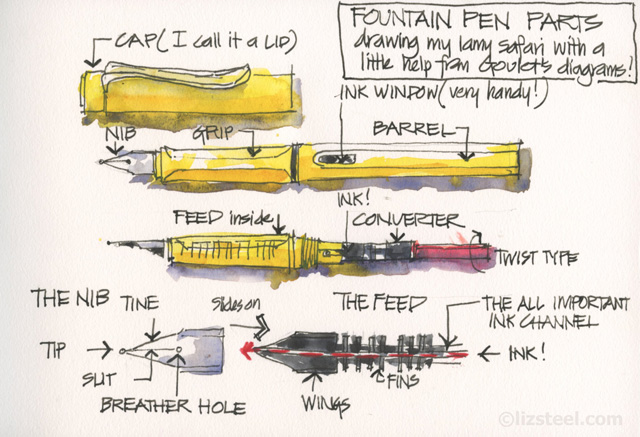 FOUNTAIN PEN PARTS
drawing my lamy safari with a
little help from Goulet's diagrams!
CAP (I call it a LID)
INK WINDOW (very handy!)
NIB
GRIP
BARREL
INK!
FEED inside
CONVERTER
TWIST TYPE
THE NIB
TINE
Slides on
THE FEED
THE ALL IMPORTANT
INK CHANNEL
TIP
INK!
SLIT
FINS
BREATHER HOLE
WINGS
©lizsteel.com